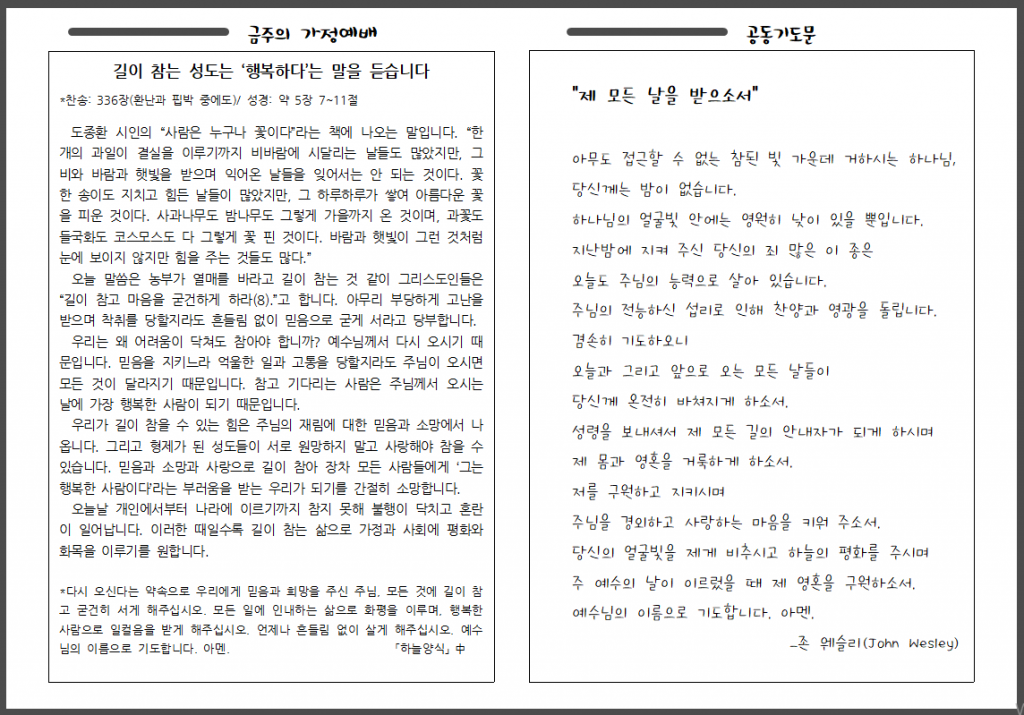 금주의 가정예배
길이 참는 성도는 ‘행복하다’는 말을 듣습니다
*찬송: 336장(환난과 핍박 중에도)/ 성경: 약 5장 7~11절
도종환 시인의 “사람은 누구나 꽃이다”라는 책에 나오는 말입니다. “한
개의 과일이 결실을 이루기까지 비바람에 시달리는 날들도 많았지만, 그
비와 바람과 햇빛을 받으며 익어온 날들을 잊어서는 안 되는 것이다. 꽃
한 송이도 지치고 힘든 날들이 많았지만, 그 하루하루가 쌓여 아름다운 꽃
을 피운 것이다. 사과나무도 밤나무도 그렇게 가을까지 온 것이며, 과꽃도
들국화도 코스모스도 다 그렇게 꽃 핀 것이다. 바람과 햇빛이 그런 것처럼
눈에 보이지 않지만 힘을 주는 것들도 많다.”
오늘 말씀은 농부가 열매를 바라고 길이 참는 것 같이 그리스도인들은
“길이 참고 마음을 굳건하게 하라(8).”고 합니다. 아무리 부당하게 고난을
받으며 착취를 당할지라도 흔들림 없이 믿음으로 굳게 서라고 당부합니다.
우리는 왜 어려움이 닥쳐도 참아야 합니까? 예수님께서 다시 오시기 때
문입니다. 믿음을 지키느라 억울한 일과 고통을 당할지라도 주님이 오시면
모든 것이 달라지기 때문입니다. 참고 기다리는 사람은 주님께서 오시는
날에 가장 행복한 사람이 되기 때문입니다.
우리가 길이 참을 수 있는 힘은 주님의 재림에 대한 믿음과 소망에서 나
옵니다. 그리고 형제가 된 성도들이 서로 원망하지 말고 사랑해야 참을 수
있습니다. 믿음과 소망과 사랑으로 길이 참아 장차 모든 사람들에게 ‘그는
행복한 사람이다’라는 부러움을 받는 우리가 되기를 간절히 소망합니다.
오늘날 개인에서부터 나라에 이르기까지 참지 못해 불행이 닥치고 혼란
이 일어납니다. 이러한 때일수록 길이 참는 삶으로 가정과 사회에 평화와
화목을 이루기를 원합니다.
*다시 오신다는 약속으로 우리에게 믿음과 희망을 주신 주님. 모든 것에 길이 참
고 굳건히 서게 해주십시오. 모든 일에 인내하는 삶으로 화평을 이루며, 행복한
사람으로 일컬음을 받게 해주십시오. 언제나 흔들림 없이 살게 해주십시오. 예수
님의 이름으로 기도합니다. 아멘. 「하늘양식」中
공동기도문
"제 모든 날을 받으소서"
아무도 접근할 수 없는 참된 빛 가운데 거하시는 하나님,
당신께는 밤이 없습니다.
하나님의 얼굴빛 안에는 영원히 낮이 있을 뿐입니다.
지난밤에 지켜 주신 당신의 죄 많은 이 종은
오늘도 주님의 능력으로 살아 있습니다.
주님의 전능하신 섭리로 인해 찬양과 영광을 돌립니다.
겸손히 기도하오니
오늘과 그리고 앞으로 오는 모든 날들이
당신께 온전히 바쳐지게 하소서.
성령을 보내셔서 제 모든 길의 안내자가 되게 하시며
제 몸과 영혼을 거룩하게 하소서.
저를 구원하고 지키시며
주님을 경외하고 사랑하는 마음을 키워 주소서.
당신의 얼굴빛을 제게 비추시고 하늘의 평화를 주시며
주 예수의 날이 이르렀을 때 제 영혼을 구원하소서.
예수님의 이름으로 기도합니다. 아멘.
_존 웨슬리(John Wesley)